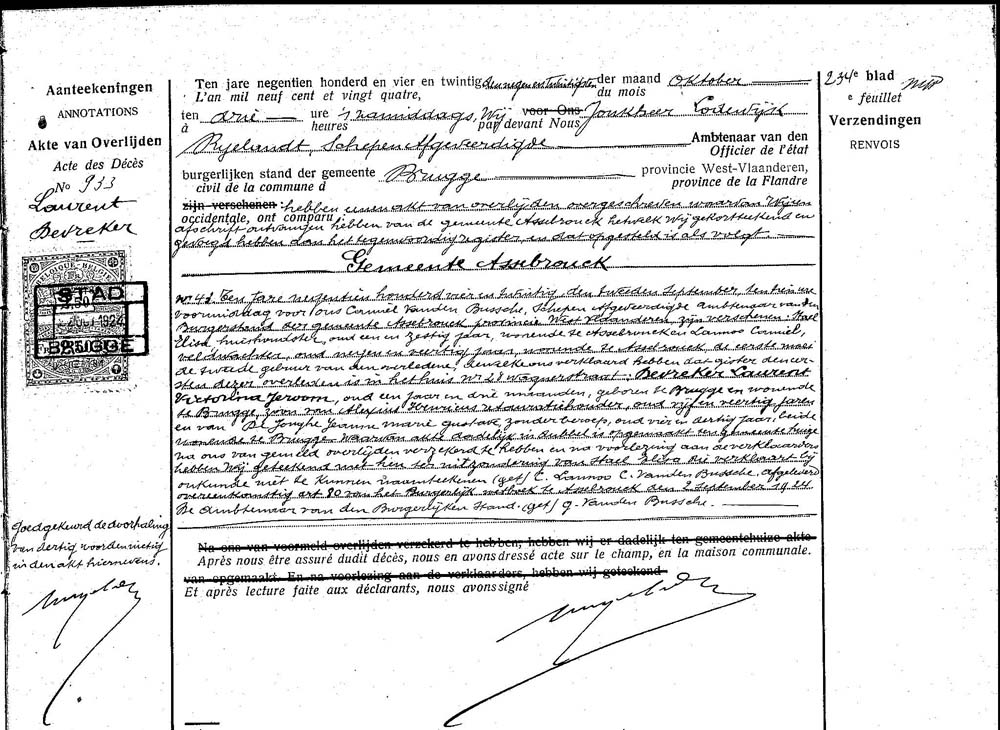 Aanteekeningen
ANNOTATIONS
Akte van Overlijden
Acte des Décès
No 933
Laurent
Bevreker
BELGIQUE-BELGIË
STAD
1924
BRUGGE
Goedgekeurd de doorhaling
van dertig woorden nietig
in den akt hiernevens.
Ten jare negentien honderd en vier en twintig den negen en twintigsten der maand Oktober
L'an mil neuf cent et vingt quatre, du mois
ten drie ure 's namiddags, Wij voor Ons Jonkheer Lodewijk
à heures par devant Nous
Ryelandt, Schepen Afgeveerdigde Ambtenaar van den
Officier de l'état
burgerlijken stand der gemeente Brugge provincie West-Vlaanderen,
civil de la commune d province de la Flandre
zijn verschenen: hebben eenen akt van overlijden overgeschreven waarvan Wij een
occidentale, ont comparu:
afschrift ontvangen hebben van de gemeente Assebrouck hetwelk Wij gekortteekend en
gevoegd hebben aan het tegenwoordig register, en dat opgesteld is als volgt.
Gemeente Assebrouck
No 42. Ten jare negentien honderd vier en twintig, den tweeden September, ten tien ure
voormiddag voor Ons Camiel Vanden Bussche, Schepen Afgeveerdigde Ambtenaar van den
Burgerstand der gemeente Assebrouck provincie West Vlaanderen, zijn verschenen: Stael
Elisa huishoudster, oud een en zestig jaar, wonende te Assebrouck en Lannoo Camiel,
veldwachter, oud negen en veertig jaar, wonende te Assebrouck de eerste moei
de tweede gebuur van den overledene; dewelke ons verklaard hebben dat gister den eer-
sten dezer overleden is in het huis No 28 Wagnerstraat: Bevreker Laurent
Victorina Jeroom, oud een jaar en drie maanden, geboren te Brugge en wonende
te Brugge, zoon van Alexius Henricus staminethouder, oud vijf en veertig jaren
en van De Jonghe Jeanne Marie Gustave zonder beroep, oud vier en dertig jaar, beide
wonende te Brugge. Waarvan akte dadelijk in dubbel is opgemaakt ten gemeente huize
na ons van gemeld overlijden verzekerd te hebben en na voorlezing aan de verklaarders
hebben Wij geteekend met hen ter uitzondering van Stael Elisa die verklaart bij
onkunde niet te kunnen naamteekenen (get) C. Lannoo C. Vanden Bussche, Afgeleverd
overeenkomstig art 80 van het Burgerlijk wetboek te Assebrouck den 2 September 1924.
De Ambtenaar van den Burgerlijken Stand. (get) G. Vanden Bussche.
Na ons van voormeld overlijden verzekerd te hebben, hebben wij er dadelijk ten gemeentehuize akte
Après nous être assuré dudit décès, nous en avons dressé acte sur le champ, en la maison communale.
van opgemaakt. En na voorlezing aan de verklaarders, hebben wij geteekend
Et après lecture faite aux déclarants, nous avons signé
234e blad
e feuillet
Verzendingen
RENVOIS